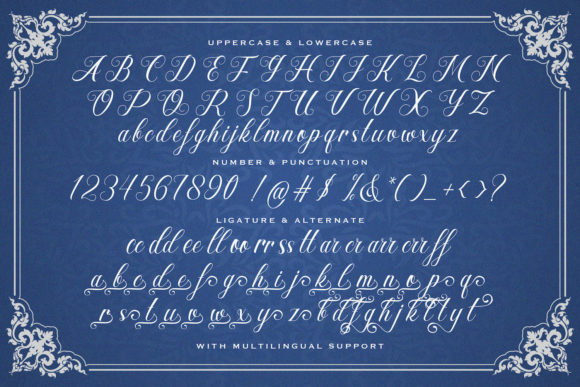 UPPERCASE & LOWERCASE
A B C D E F G H I J K L M N
O P Q R S T U V W X Y Z
abcdefghijklmnopqrstuvwxyz
NUMBER & PUNCTUATION
1234567890 !@#$ %&*()_+<>?
LIGATURE & ALTERNATE
cc dd ee ll oo rr ss tt ar cr arr crr ff
a b c d e f g h i j k l m n o p q
r s t u v w x y z
WITH MULTILINGUAL SUPPORT